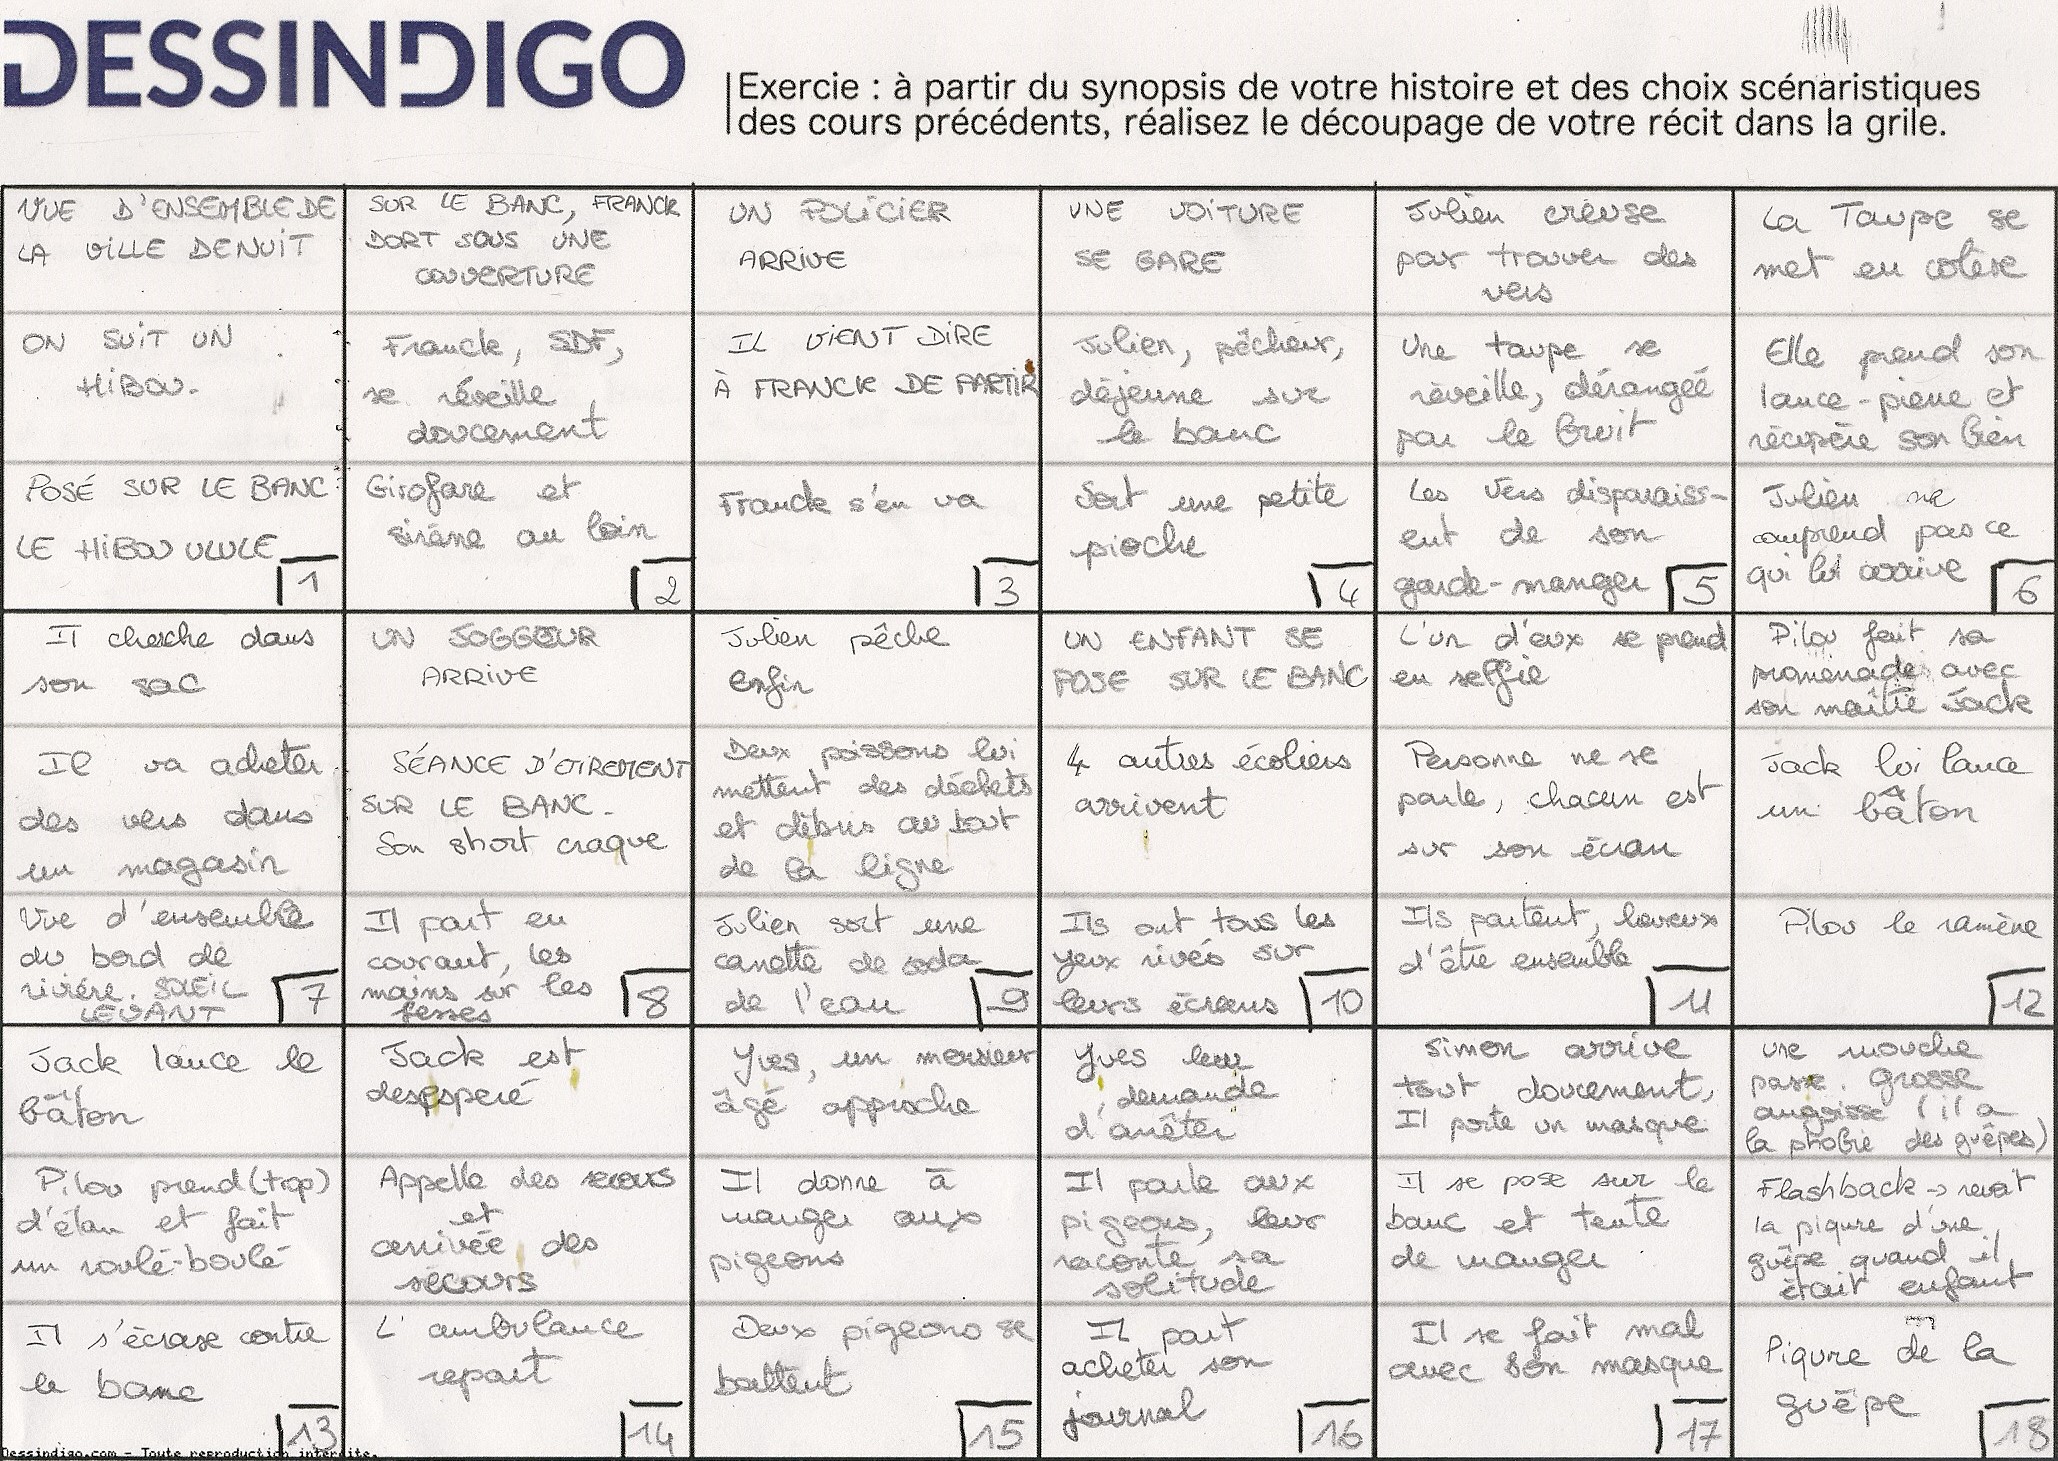 DESSINDIGO
Exercie : à partir du synopsis de votre histoire et des choix scénaristiques
des cours précédents, réalisez le découpage de votre récit dans la grile.
VUE D'ENSEMBLE DE
LA VILLE DE NUIT
ON SUIT UN
HIBOU.
POSÉ SUR LE BANC
LE HIBOU ULULE
1
SUR LE BANC, FRANCK
DORT SOUS UNE
COUVERTURE
Franck, SDF,
se réveille
doucement
Girofare et
sirène au loin
2
UN POLICIER
ARRIVE
IL VIENT DIRE
À FRANCK DE PARTIR
Franck s'en va
3
UNE VOITURE
SE GARE
Julien, pêcheur,
déjeune sur
le banc
Sort une petite
pioche
4
Julien creuse
pour trouver des
vers
Une taupe se
réveille, dérangeé
par le bruit
Les vers disparaiss-
ent de son
garde-manger
5
La Taupe se
met en colère
Elle prend son
lance-pierre et
récupère son bien
Julien ne
comprend pas ce
qui lui arrive
6
Il cherche dans
son sac
Il va acheter
des vers dans
un magasin
Vue d'ensemble
du bord de
rivière. SOLEIL
LEVANT
7
UN JOGGEUR
ARRIVE
SÉANCE D'ETIREMENT
SUR LE BANC.
Son short craque
Il part en
courant, les
mains sur les
fesses
8
Julien pêche
enfin
Deux poissons lui
mettent des déchets
et débris au bout
de la ligne
Julien sort une
canette de soda
de l'eau
9
UN ENFANT SE
POSE SUR LE BANC
4 autres écoliers
arrivent
Ils ont tous les
yeux rivés sur
leurs écrans
10
L'un d'eux se prend
en selfie
Personne ne se
parle, chacun est
sur son écran
Ils partent, heureux
d'être ensemble
11
Pilou fait sa
promenade avec
son maître Jack
Jack lui lance
un bâton
Pilou le ramène
12
Jack lance le
bâton
Pilou prend (trop)
d'élan et fait
un roulé-boulé
Il s'écrase contre
le banc
13
Jack est
desesperé
Appelle des secours
et
arrivée des
secours
L'ambulance
repart
14
Yves, un monsieur
âgé approche
Il donne à
manger aux
pigeons
Deux pigeons se
battent
15
Yves leur
demande
d'arrêter
Il parle aux
pigeons, leur
raconte sa
solitude
Il part
acheter son
journal
16
Simon arrive
tout doucement,
Il porte un masque
Il se pose sur le
banc et tente
de manger
Il se fait mal
avec son masque
17
une mouche
passe. Grosse
angoisse (il a
la phobie des guêpes)
Flashback → revoit
la piqure d'une
guêpe quand il
était enfant
Piqure de la
guêpe
18
Dessindigo.com - Toute reproduction interdite.